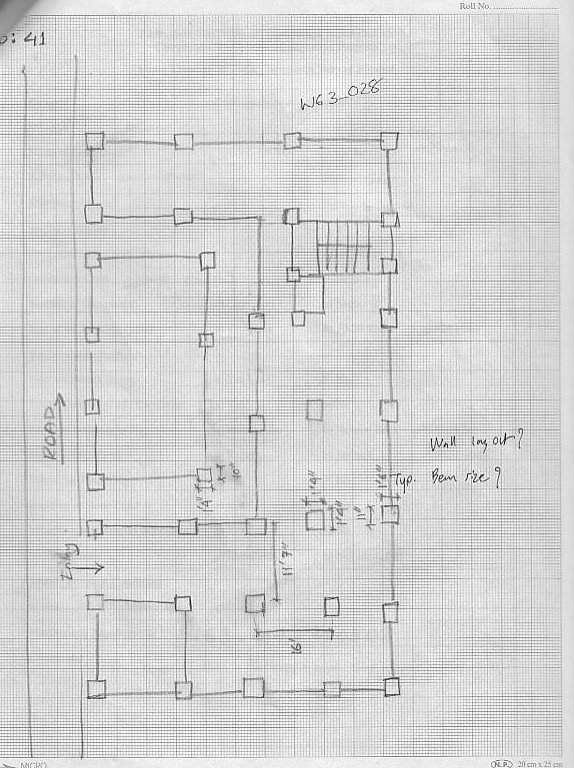 Roll No.
: 41
WG3_028
ROAD
Wall layout?
Typ. Beam size?
1'4"
10"
1'4"
1'4"
11"
1'6"
Entry
11'7"
16'
MICRO
N.P. 20 cm x 25 cm